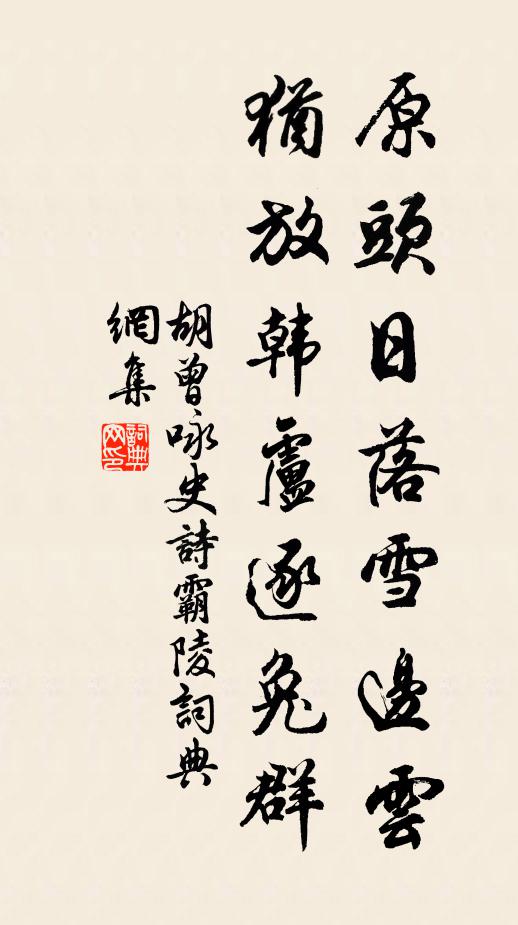 原頭日落雪邊雲
猶放韓盧逐兔群
胡曾咏史詩霸陵詞典
網集
詞典網印